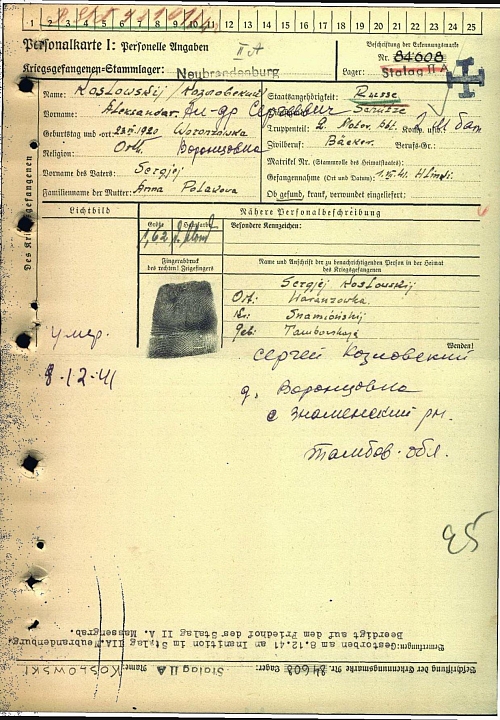 1 2 3 4 5 6 7 8 9 10 11 12 13 14 15 16 17 18 19 20 21 22 23 24 25
Personalkarte I: Personelle Angaben
II A
Beschriftung der Erkennungsmarke
Nr. 84608
Kriegsgefangenen-Stammlager: Neubrandenburg
Lager: Stalag II A
Des Kriegsgefangenen
Name: Koslowskij / Козловский
Staatsangehörigkeit: Russe
Vorname: Aleksandar. Ал-др Сергеевич
Dienstgrad:
Geburtstag und -ort 1920 Woronzowka
Truppenteil: 2. Motor. Abt. Komp. usw.:
Religion: Orth. Воронцовка
Zivilberuf: Bäcker. Berufs-Gr.:
Matrikel Nr. (Stammrolle des Heimatstaates)
Vorname des Vaters: Sergjej
Gefangennahme (Ort und Datum): 41
Familienname der Mutter: Anna Polakowa
Ob gesund, krank, verwundet eingeliefert:
Lichtbild
Nähere Personalbeschreibung
Größe
Haarfarbe
Besondere Kennzeichen:
1,62 blond
Fingerabdruck
des rechten! Zeigefingers
Name und Anschrift der zu benachrichtigenden Person in der Heimat
des Kriegsgefangenen
Sergjej Koslowskij
Ort: Waranzowka.
Kr: Snamiónskij
Geb: Tambovskaja
Wenden!
Умер.
8.12.41
Сергей Козловский
д. Воронцовка
с Знаменский рн.
Тамбов. обл.
95
Beschriftung der Erkennungsmarke Nr. 84608 Lager: Stalag II A Name: KOSLOWSKI
Bemerkungen: Gestorben am 8.12.41 an Inanition im Stalag IIA, Neubrandenburg.
Beerdigt auf dem Friedhof des Stalag II A Massengrab.